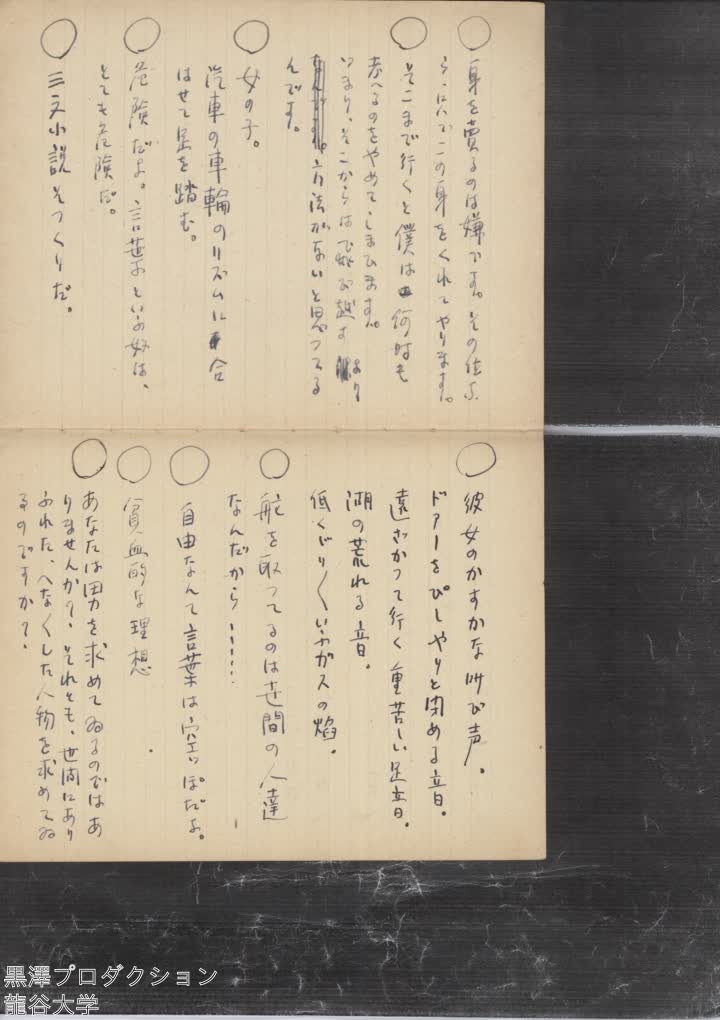 ○ 身を賣るのは嫌です。その位な
ら、只でこの身をくれてやります。
○ そこまで行くと僕は何時も
考へるのをやめてしまひます。
つまり、そこからは飛び越す より
方法がないと思つてる
んです。
○ 女の子。
汽車の車輪のリズムに合
はせて足を踏む。
○ 危険だよ。言葉といふ奴は、
とても危険だ。
○ 三文小説そつくりだ。
○ 彼女のかすかな叫び声。
ドアーをぴしやりと閉める音。
遠ざかつて行く重苦しい足音。
湖の荒れる音。
低くぶり〱いふガスの焔。
○ 舵を取つてるのは世間の人達
なんだから……
○ 自由なんて言葉は穴空つぽだよ。
○ 貧血的な理想
○ あなたは男を求めてゐるのではあ
りませんか?、それとも、世間にあり
ふれた、へなくした人物を求めてゐ
るのですか?、
黒澤プロダクション
龍谷大学